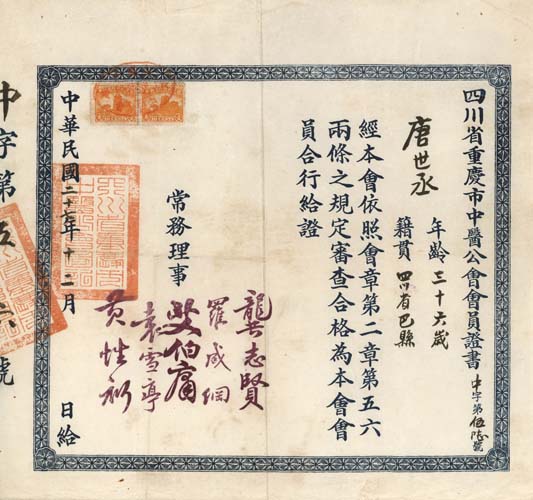 四川省重慶市中醫公會會員證書 中字第伍陸號
唐世丞 年齡 三十六歲
籍貫 四川省巴縣
經本會依照會章第二章第五六
兩條之規定審查合格為本會會
員合行給證
常務理事
龔志賢
羅成綱
伯庸
袁雪亭
黃性初
中華民國二十七年十二月 日給
中字第伍六號